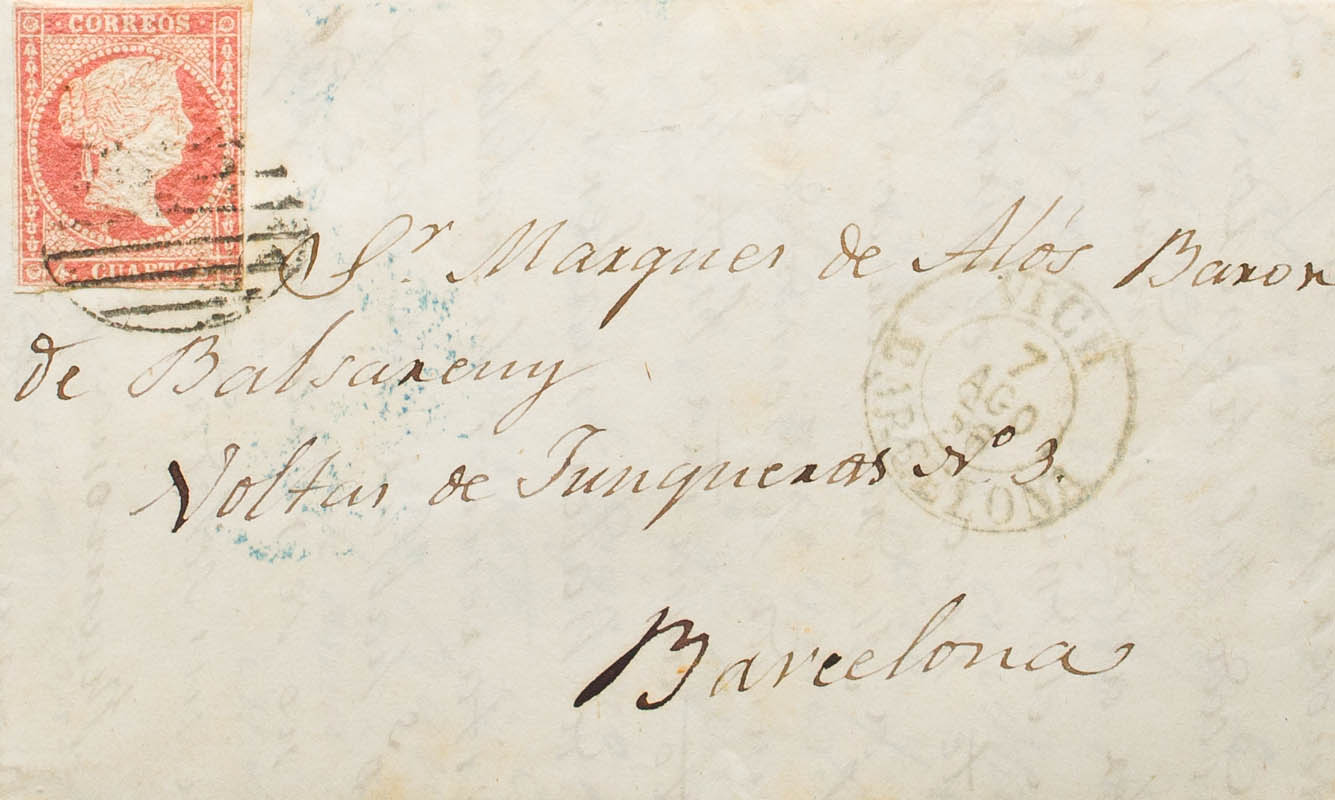 CORREOS
4 CUARTOS
Sr Marques de Alós Baron
de Balsareny
Voltas de Junqueras Nº 3.
Barcelona
VICH
7
AGO
BARCELONA